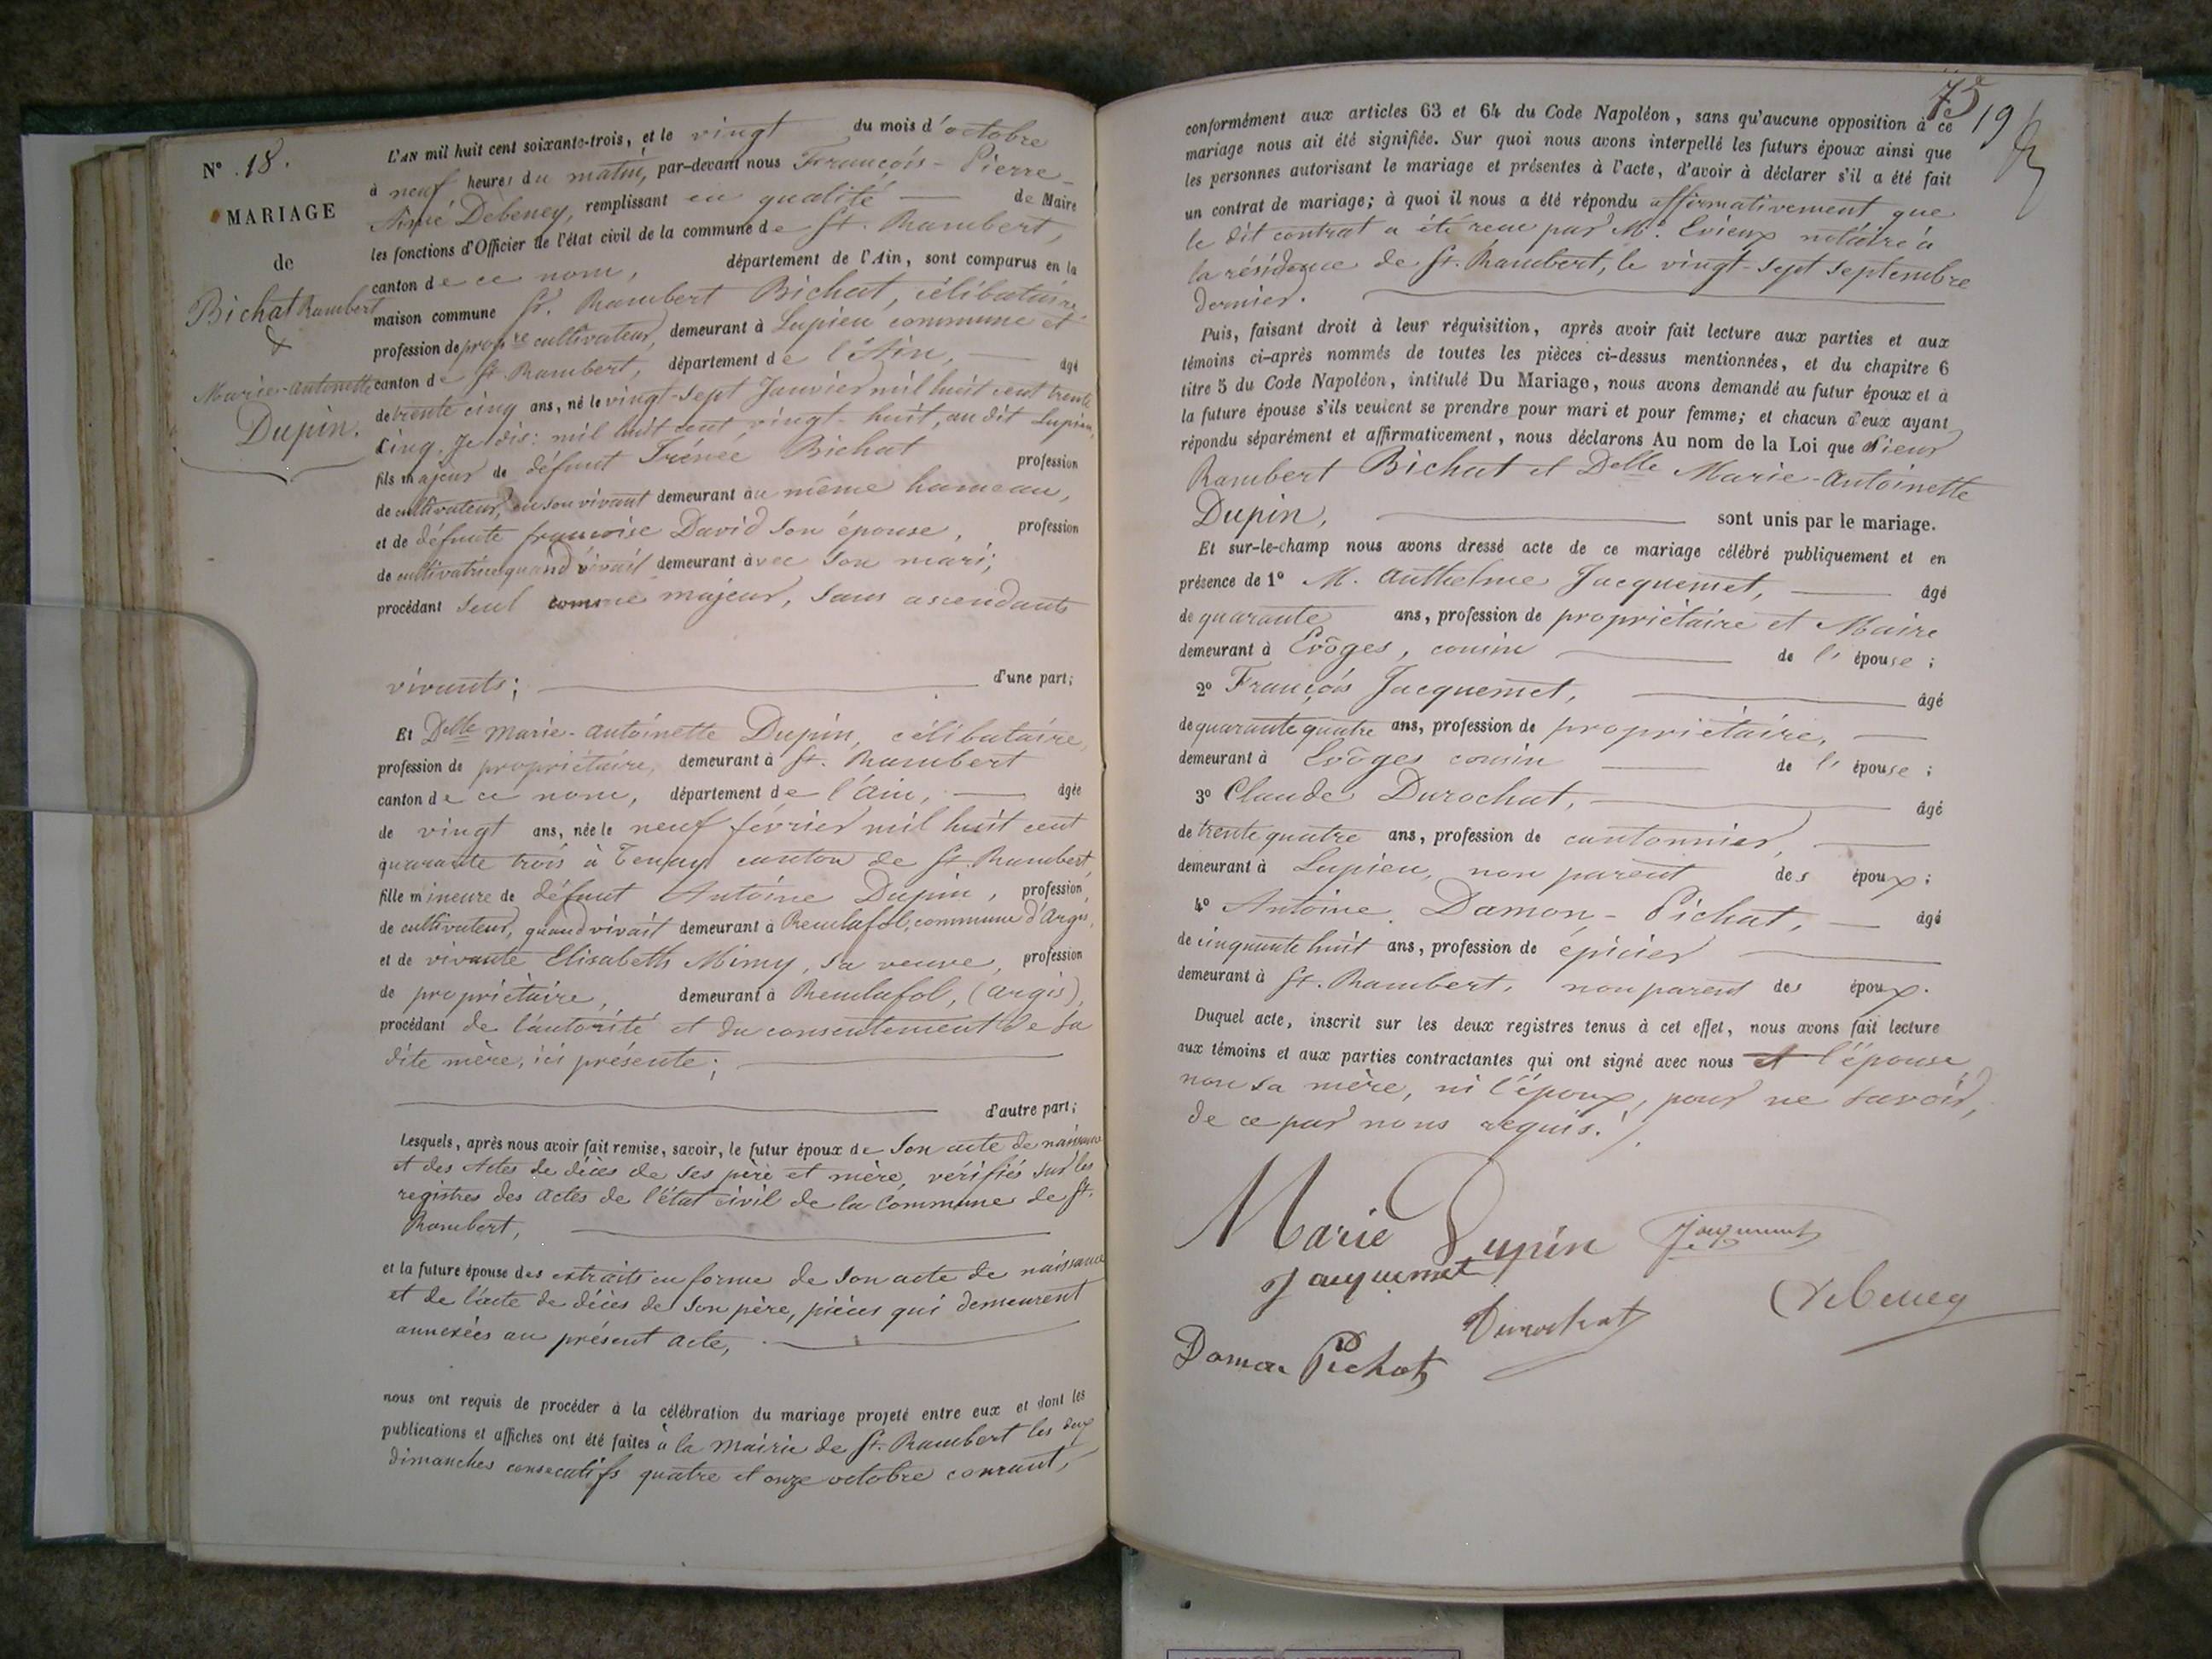 N° 18.
MARIAGE
de
Bichat Rambert
&
Marie-Antoinette
Dupin.
L'AN mil huit cent soixante-trois, et le vingt du mois d'octobre
à neuf heures du matin, par-devant nous François-Pierre-
Aimé Debeney, remplissant en qualité de Maire
les fonctions d'Officier de l'état civil de la commune de St. Rambert,
canton de ce nom, département de l'Ain, sont comparus en la
maison commune Sr. Rambert Bichat, célibataire,
profession de propre cultivateur, demeurant à Lupieu commune et
canton de St. Rambert, département de l'Ain, âgé
de trente cinq ans, né le vingt-sept Janvier mil huit cent trente
cinq, Je dis: mil huit cent vingt-huit, au dit Lupieu,
fils majeur de défunt Irénée Bichat profession
de cultivateur, en son vivant demeurant au même hameau,
et de défunte françoise David son épouse, profession
de cultivatrice quand vivait demeurant avec son mari;
procédant seul comme majeur, sans ascendants
vivants; d'une part;
Et Delle Marie-Antoinette Dupin, célibataire,
profession de propriétaire, demeurant à St. Rambert
canton de ce nom, département de l'Ain, âgée
de vingt ans, née le neuf février mil huit cent
quarante trois à Tenay canton de St. Rambert,
fille mineure de défunt Antoine Dupin, profession
de cultivateur, quand vivait demeurant à Reculafol, commune d'Argis,
et de vivante Elisabeth Mimy, sa veuve, profession
de propriétaire, demeurant à Reculafol, (Argis),
procédant de l'autorité et du consentement de sa
dite mère, ici présente;
d'autre part;
Lesquels, après nous avoir fait remise, savoir, le futur époux de son acte de naissance
et des Actes de décès de ses père et mère, vérifiés sur les
registres des actes de l'état civil de la Commune de St.
Rambert,
et la future épouse des extraits en forme de son acte de naissance
et de l'acte de décès de son père, pièces qui demeurent
annexées au présent acte,
nous ont requis de procéder à la célébration du mariage projeté entre eux et dont les
publications et affiches ont été faites à la Mairie de St. Rambert les deux
dimanches consecutifs quatre et onze octobre courant,
75
19
conformément aux articles 63 et 64 du Code Napoléon, sans qu'aucune opposition à ce
mariage nous ait été signifiée. Sur quoi nous avons interpellé les futurs époux ainsi que
les personnes autorisant le mariage et présentes à l'acte, d'avoir à déclarer s'il a été fait
un contrat de mariage; à quoi il nous a été répondu affirmativement que
le dit contrat a été reçu par Me. Evieux notaire à
la résidence de St. Rambert, le vingt-sept septembre
dernier.
Puis, faisant droit à leur réquisition, après avoir fait lecture aux parties et aux
témoins ci-après nommés de toutes les pièces ci-dessus mentionnées, et du chapitre 6
titre 5 du Code Napoléon, intitulé Du Mariage, nous avons demandé au futur époux et à
la future épouse s'ils veulent se prendre pour mari et pour femme; et chacun d'eux ayant
répondu séparément et affirmativement, nous déclarons Au nom de la Loi que Sieur
Rambert Bichat et Delle Marie-Antoinette
Dupin, sont unis par le mariage.
Et sur-le-champ nous avons dressé acte de ce mariage célébré publiquement et en
présence de 1° M. Anthelme Jacquemet, âgé
de quarante ans, profession de propriétaire et Maire
demeurant à Evôges, cousin de l'épouse;
2° François Jacquemet, âgé
de quarante quatre ans, profession de propriétaire,
demeurant à Evôges cousin de l'épouse;
3° Claude Durochat, âgé
de trente quatre ans, profession de cantonnier,
demeurant à Lupieu, non parent des époux;
4° Antoine Damon-Pichat, âgé
de cinquante huit ans, profession de épicier
demeurant à St. Rambert, non parent des époux.
Duquel acte, inscrit sur les deux registres tenus à cet effet, nous avons fait lecture
aux témoins et aux parties contractantes qui ont signé avec nous et l'épouse,
non sa mère, ni l'époux, pour ne savoir,
de ce par nous requis.
Marie Dupin
Jacquemet
Jacquemet
Debeney
Durochat
Damon Pichat